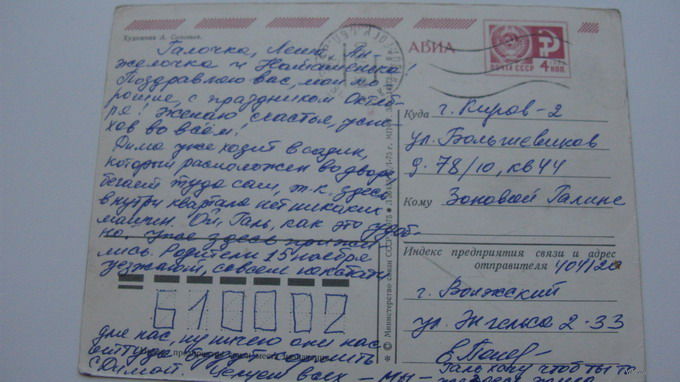 Художник А. Соловьев.
Галочка, Лена, Ан-
желочка и Наташенька!
Поздравляю вас, мои хо
рошие, с праздником Октяб-
ря! Желаю счастья, успе-
хов во всём!
Дима уже ходит в садик,
который расположен во дворе
бегает туда сам, т.к. здесь
внутри квартала нет никаких
машин. Ой, Галь, как это удоб-
но.
лись. Родители 15 ноября
уезжают, совсем некстати
для нас, ну ничего они нас
будут
с Димой. Целуем всех – мы –
АВИА
ПОЧТА СССР
4 коп.
Куда г. Киров-2
ул. Большевиков
д. 78/10, кв 44
Кому Зоновой Галине
Индекс предприятия связи и адрес
отправителя 404120
г. Волжский
ул. Энгельса 2-33
Галь хочу чтоб ты
610002
© Министерство связи СССР